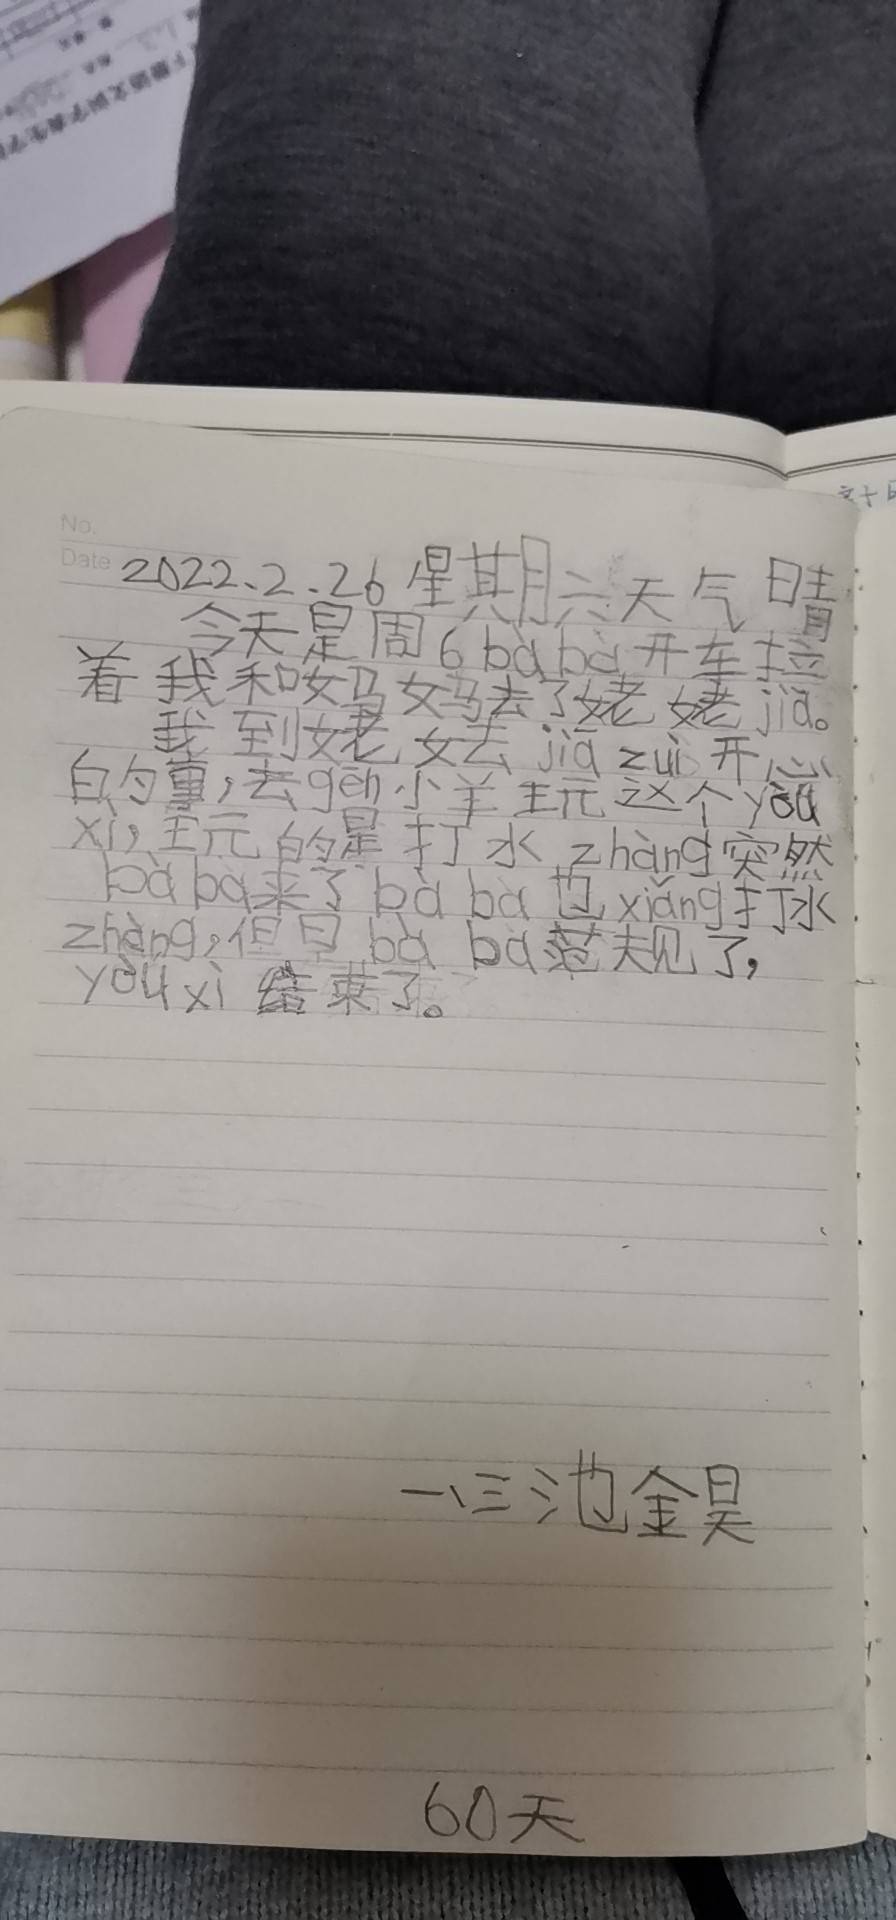 No.
Date 2022.2.26 星期六天气晴
今天是周6 bà bà 开车拉
着我和妈妈去了姥姥 jiā。
我到姥姥去 jiā zuì 开心
的董,去 gēn 小羊玩这个 yóu
xì,玩的是打水 zhàng 突然
bà bà 来了 bà bà 也 xiǎng 打水
zhàng,但日 bà bà 范夫见了,
yóu xì 结束了。
一、三池金昊
60天